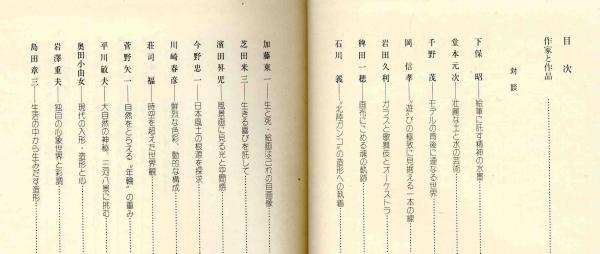 目次
作家と作品
対談
下保 昭 絵筆に託す精神の水墨
堂本元次 壮麗な土と水の芸術
千野 茂 モデルの背後に連なる世界
岡 信孝 “遊び”の極致に見据える一本の線
岩田久利 ガラスと歌舞伎とオーケストラ
稗田一穂 画布にこめる魂の軌跡
石川 義 “北陸ガンコ”の造形への執着
加藤東一 生と死・絵画は己れの自画像
芝田米三 生きる喜びを託して
濱田昇児 風景画に見る光と空間感
今野忠一 日本風土の根源を探求
川崎春彦 鮮烈な色彩、動的な構成
荘司 福 時空を超えた世界観
菅野矢一 自然をとらえる“年輪”の重み
平川敏夫 大自然の神秘、三河八景に挑む
奥田小由女 現代の人形・造形と心
岩澤重夫 独自の心象世界と彩調
島田章三 生活の中から生みだす造形